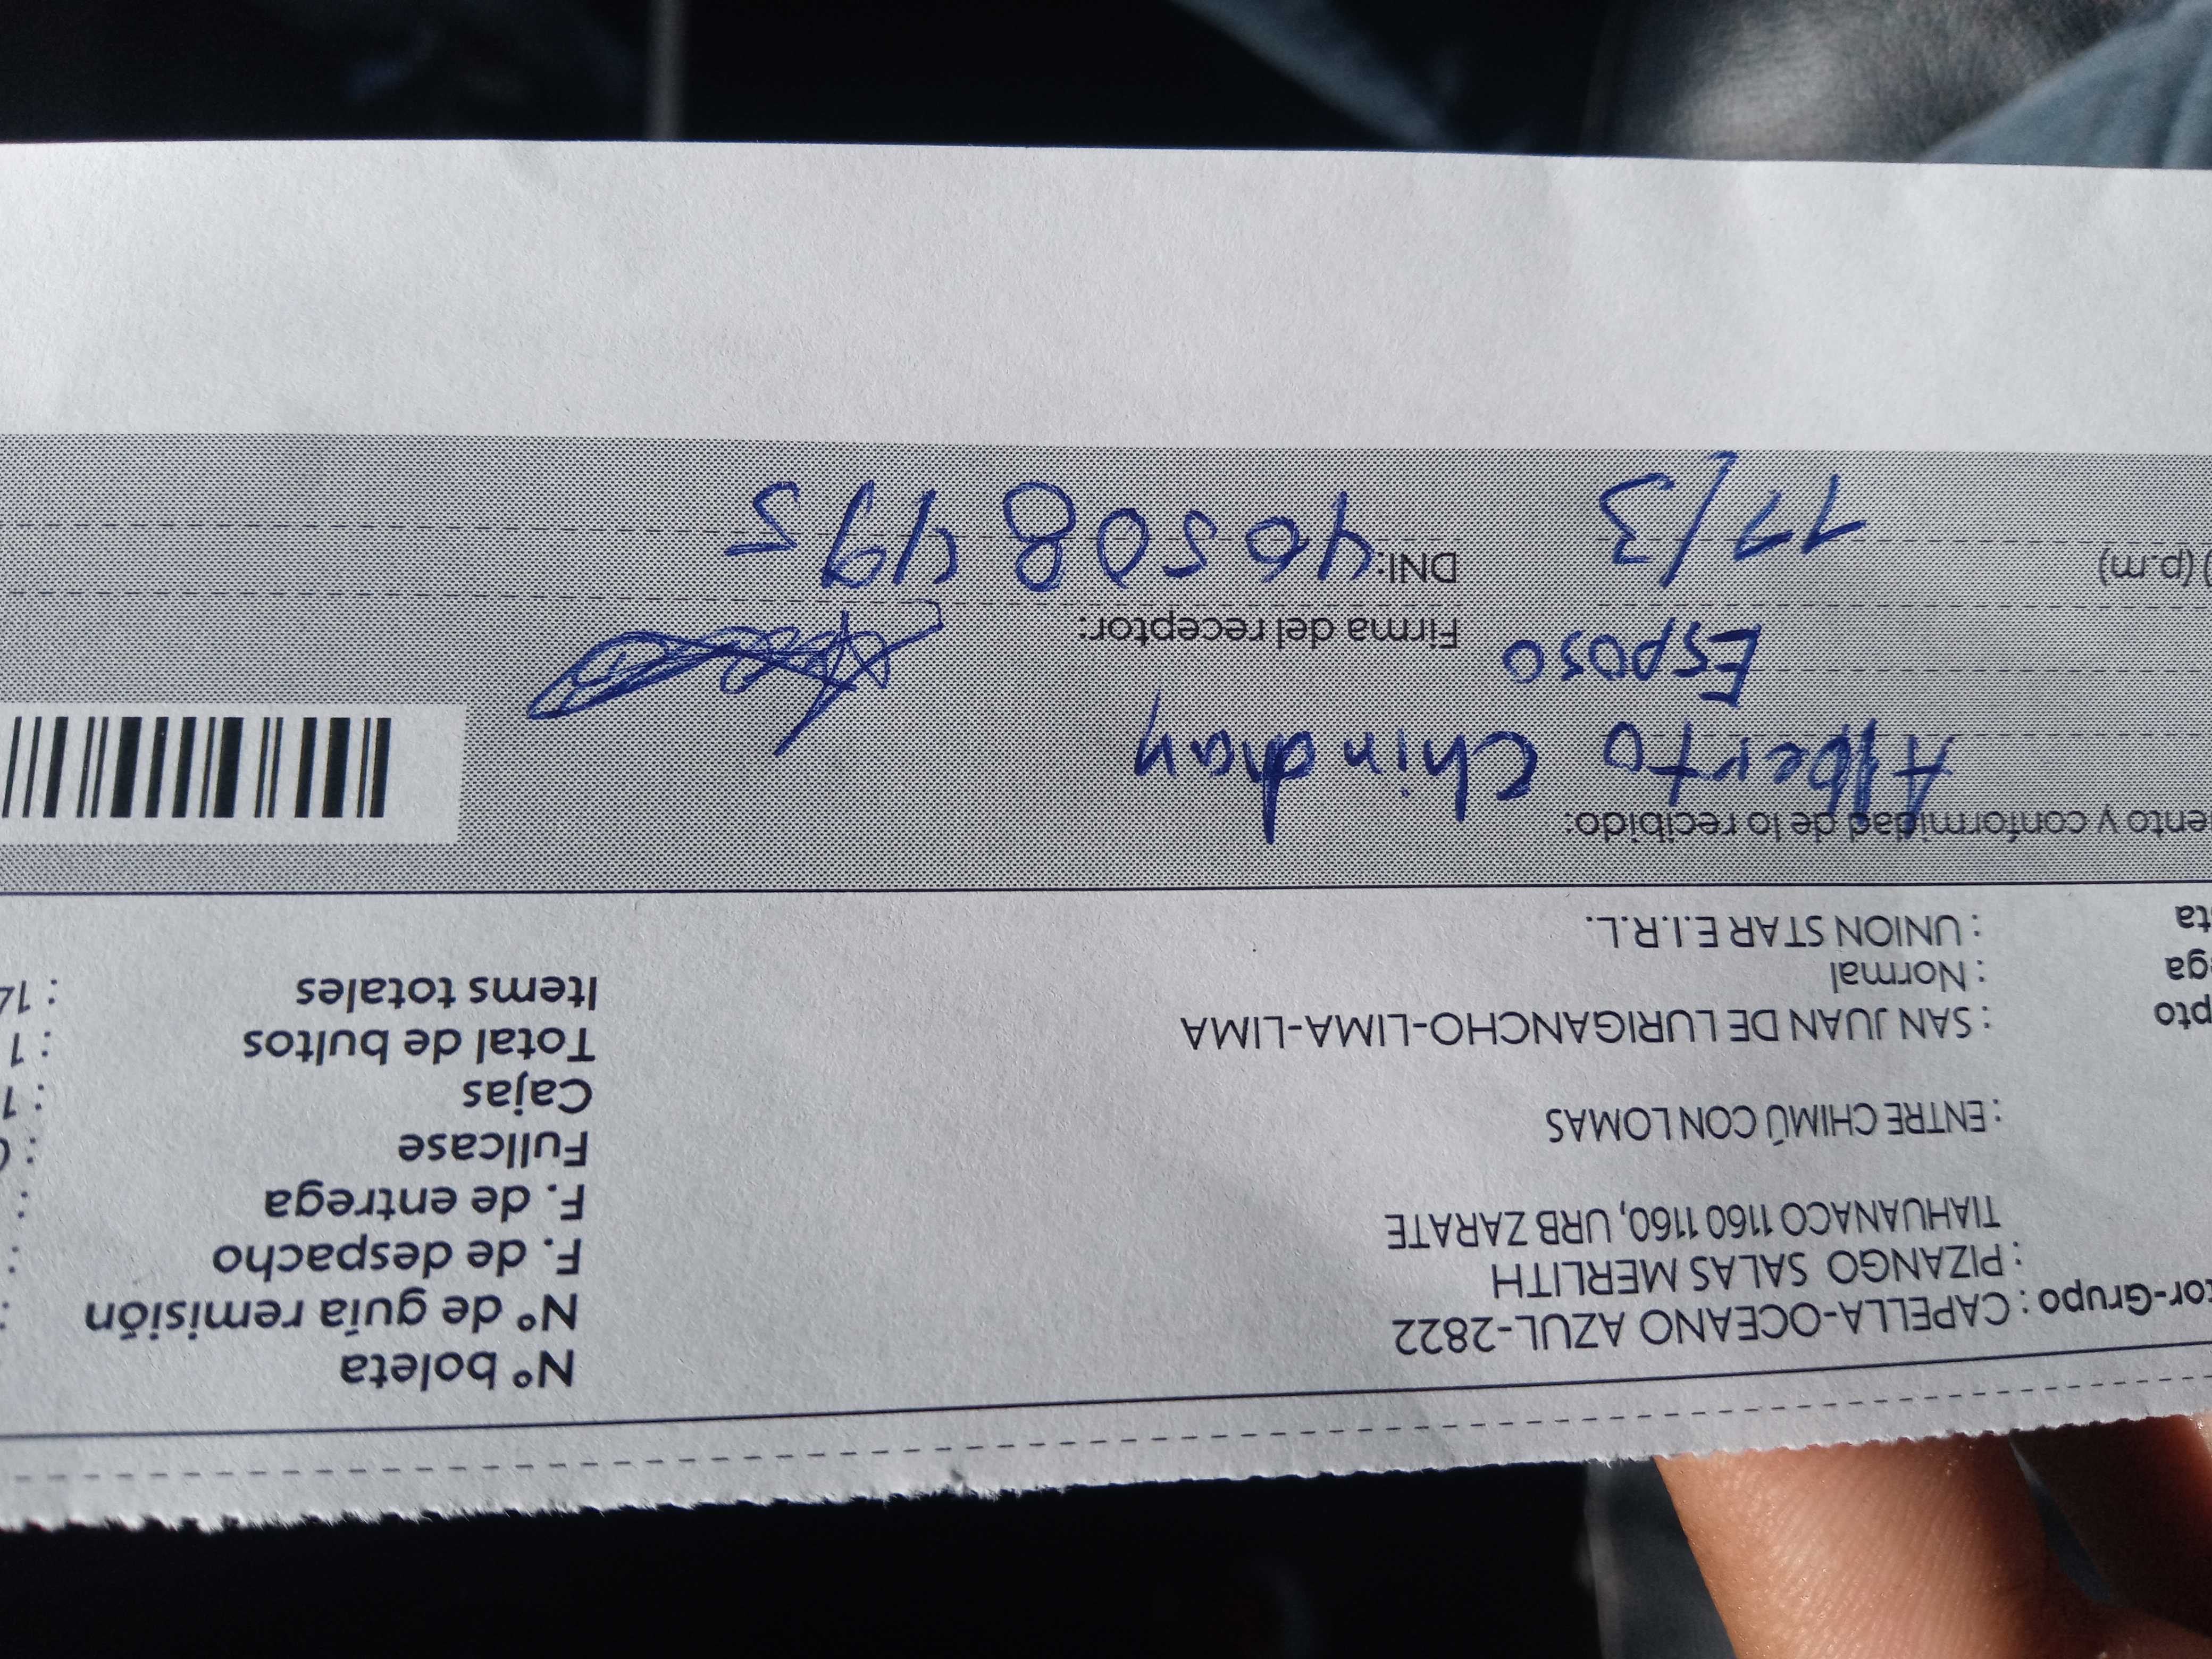 Nº boleta
tor-Grupo : CAPELLA-OCEANO AZUL-2822
Nº de guía remisión :
: PIZANGO SALAS MERLITH
F. de despacho :
TIAHUANACO 1160 1160, URB ZARATE
F. de entrega :
Fullcase :
: ENTRE CHIMÚ CON LOMAS
Cajas : 1
Total de bultos : 1
pto : SAN JUAN DE LURIGANCHO-LIMA-LIMA
Items totales : 14
ga : Normal
ta : UNION STAR E.I.R.L.
ento y conformidad de lo recibido:
Alberto Chindhay
Esposo
Firma del receptor:
) (p.m) 11/3
DNI: 40508495